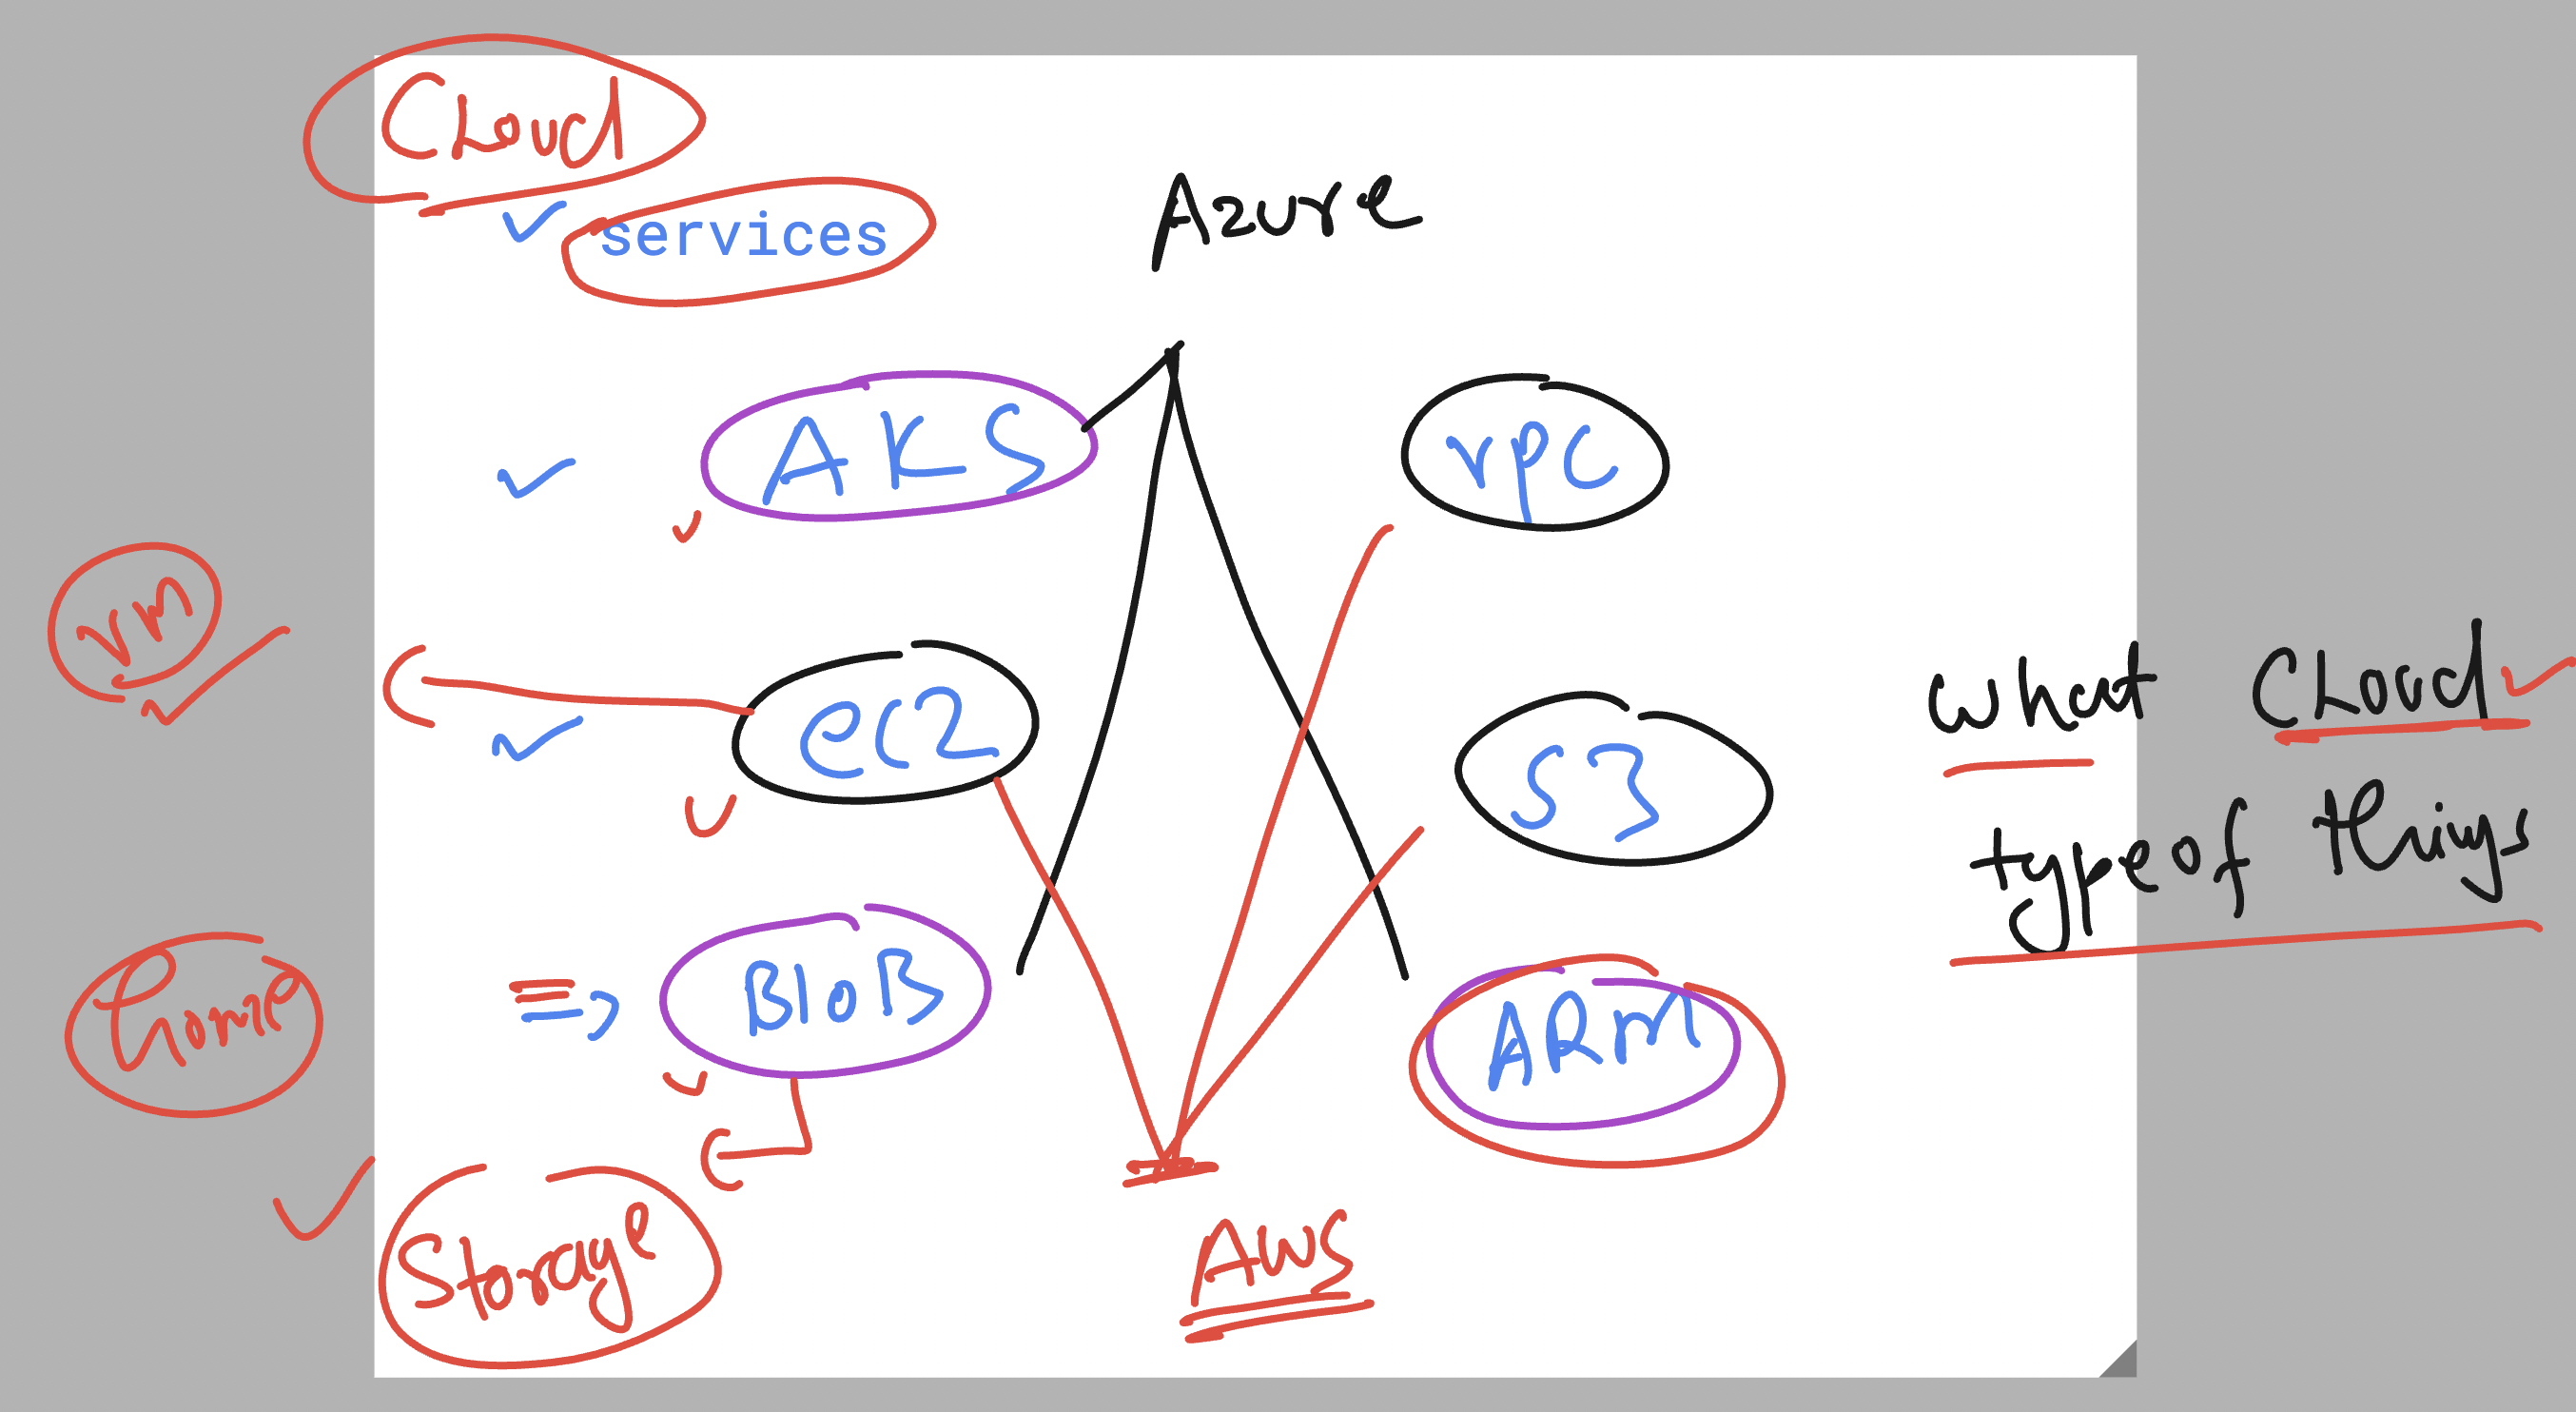 Cloud
services
Azure
AKS
vpc
VM
ec2
What Cloud
S3
type of things
BloB
ARM
Storage
AWS